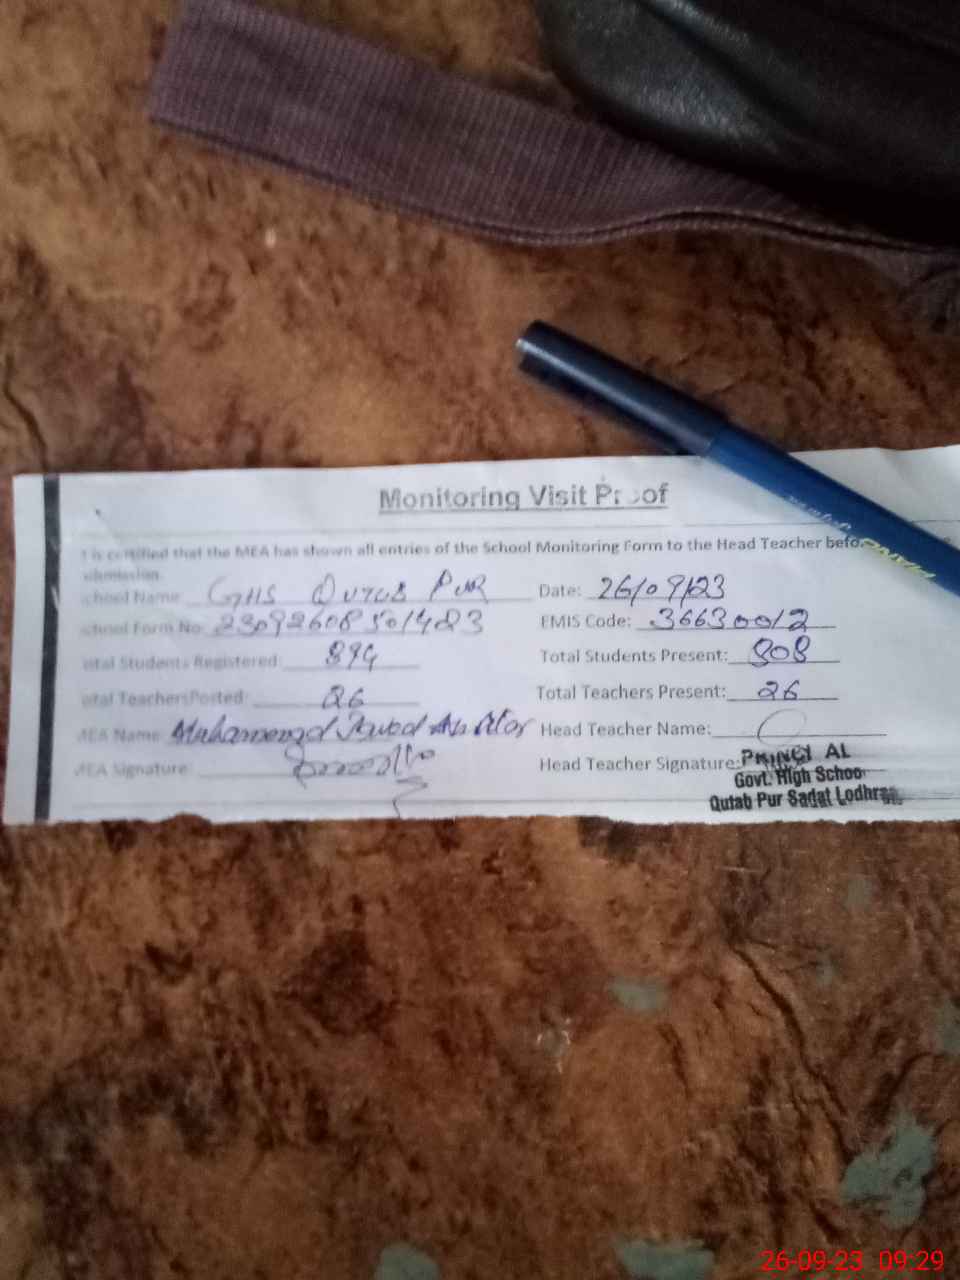 Monitoring Visit Proof
t is certified that the MEA has shown all entries of the School Monitoring Form to the Head Teacher befo
submission.
chool Name GHS QUTUB PUR Date: 26/09/23
chool Form No: EMIS Code: 36630012
otal Students Registered: 894 Total Students Present: 808
otal TeachersPosted: 26 Total Teachers Present: 26
MEA Name Muhammad Head Teacher Name:
MEA Signature Head Teacher Signature:
PRINCI AL
Govt. High Schoo
Qutab Pur Sadat Lodhran
26-09-23 09:29